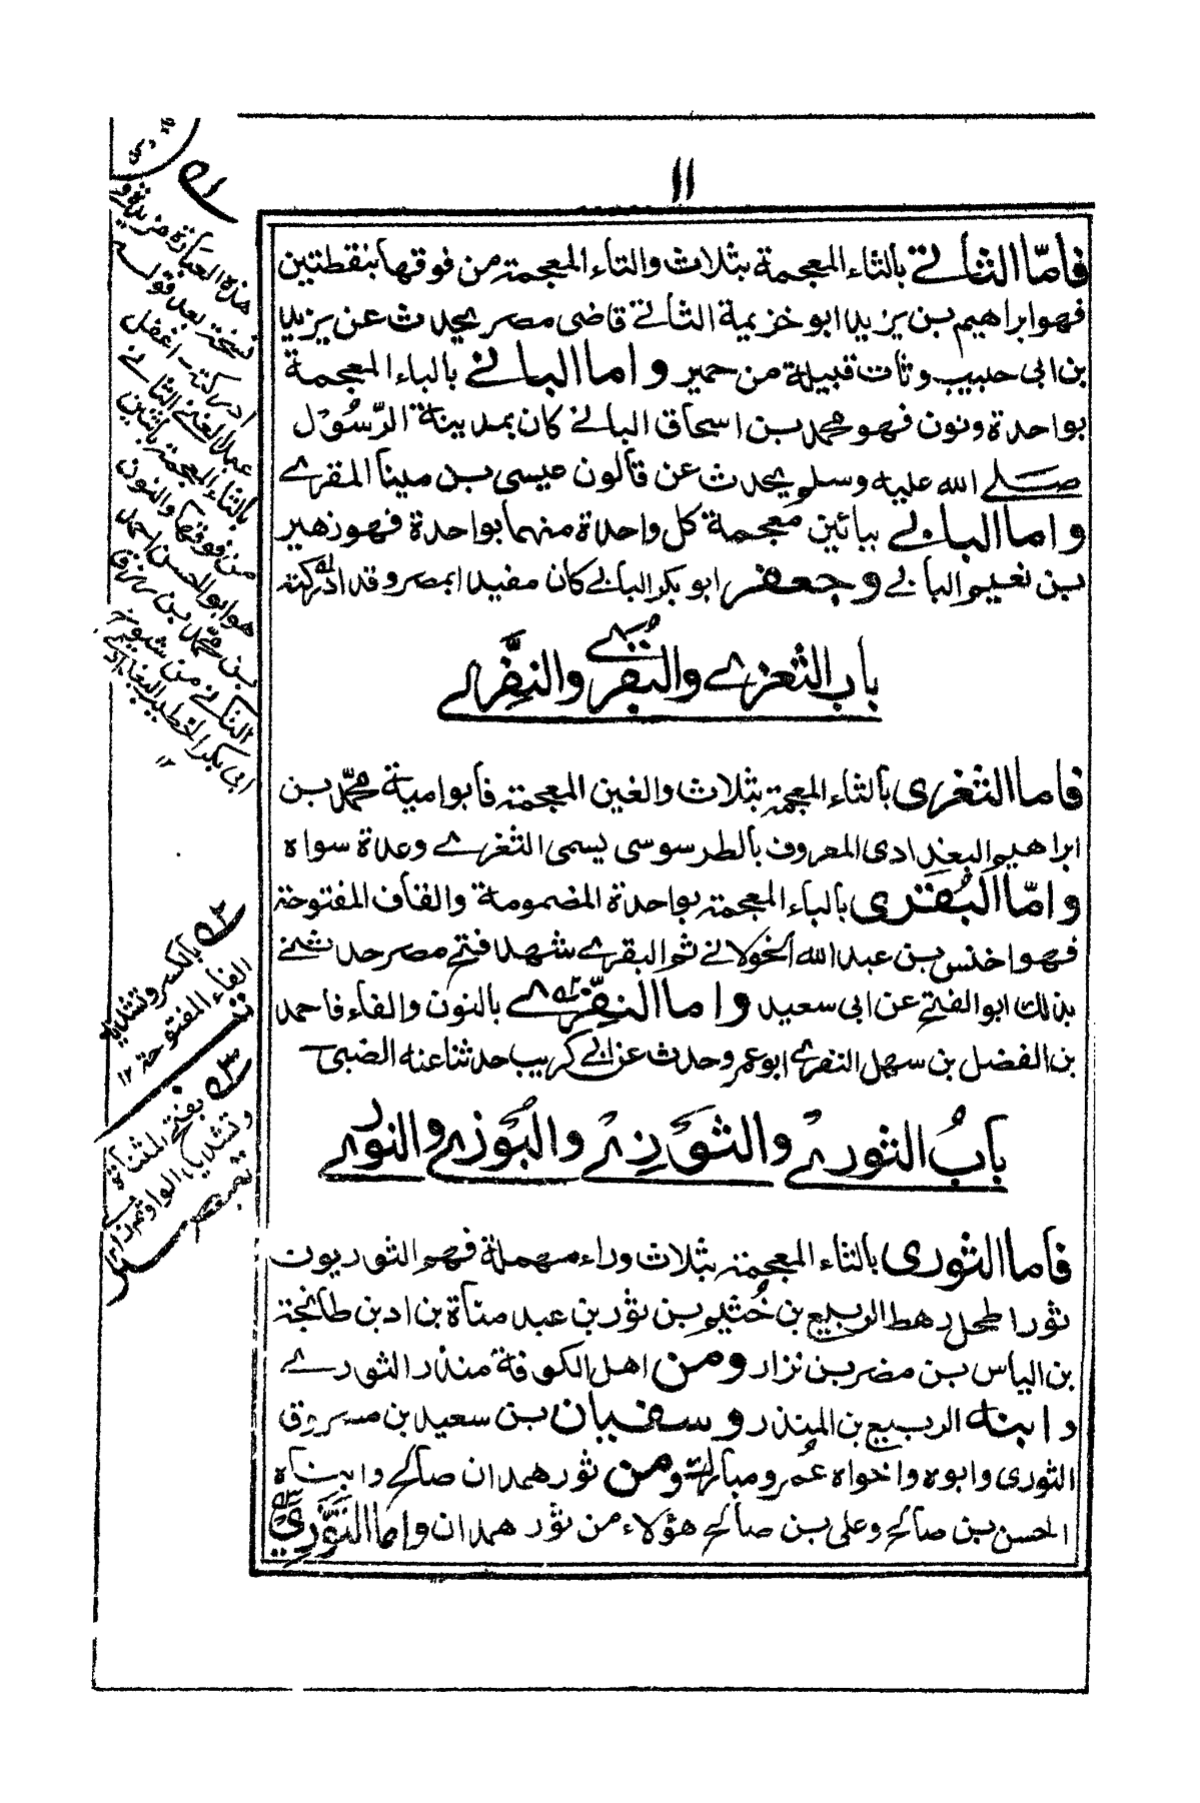 ١١
فامّا الثاتي بالثاء المعجمة بثلاث والتاء المعجمة من فوقها بنقطتين
فهو ابراهيم بن يزيد ابو خزيمة الثاتي قاضى مصر يحدث عن يزيد
بن ابى حبيب وثات قبيلة من حمير واما الباني بالباء المعجمة
بواحدة ونون فهو محمد بن اسحاق الباني كان بمدينة الرّسُوْل
صلى الله عليه وسلم يحدث عن قالون عيسى بن مينا المقرى
واما البابي ببائين معجمة كل واحدة منهما بواحدة فهو زهير
بن نعيم البابي وجعفر ابو بكر البابي كان مفيدا بمصر وقد ادركته
باب الثغرى والبُقَرى والنِفَّرى
فاما الثغرى بالثاء المعجمة بثلاث والغين المعجمة فابو امية محمّد بن
ابراهيم البغدادى المعروف بالطرسوسى يسمى الثغرى وعدة سواه
وامّا البُقَرى بالباء المعجمة بواحدة المضمومة والقاف المفتوحة
فهو اخنس بن عبد الله الخولاني ثم البقرى شهد فتح مصر حدثنى
بذلك ابو الفتح عن ابى سعيد واما النفِّرى بالنون والفاء فاحمد
بن الفضل بن سهل النفرى ابو عمر وحدث عن ابى كريب حدثنا عنه الضبى
بابُ الثورى والثوَزِى والبُوْزى والنورى
فاما الثورى بالثاء المعجمة بثلاث وراء مهملة فهم الثوريون
ثور اطحل رهط الربيع بن خُثيم بن ثور بن عبد مناة بن اد بن طابخة
بن الياس بن مضر بن نزار ومن اهل الكوفة منذر الثورى
وابنه الربيع بن المنذر وسفيان بن سعيد بن مسروق
الثورى وابوه واخواه عُمر ومبارك ومن ثور همدان صالح وابناه
الحسن بن صالح وعلى بن صالح هؤلاء من ثور همدان واما التَوَّزِىّ
هذه العبارة مزيدة فى
نسخة بعد قوله
ادركته اغفل
عبد الغنى الثانى
بالثاء المعجمة باثنين
من فوقها والنون
هو ابو الحسن احمد
بن محمّد بن رزق
من شيوخ
ابى بكر الخطيب البغدادى
١٢
بالكسر وتشديد
الفاء المفتوحة ١٢
بفتح المثناة
وتشديد الواو ثم زاى